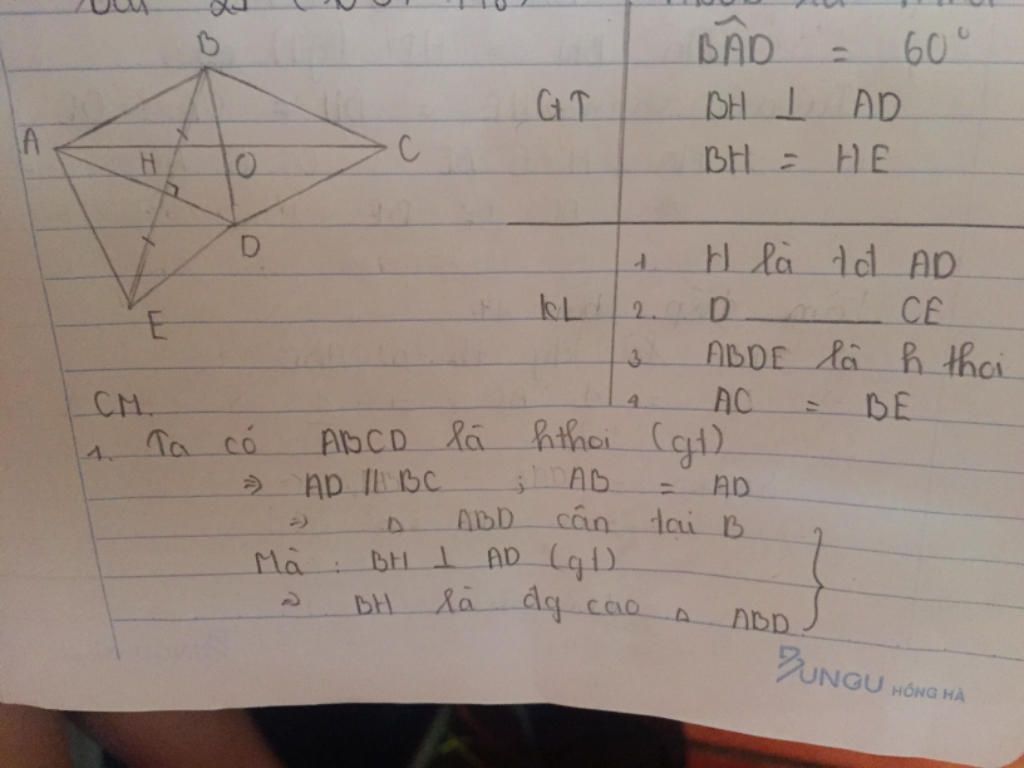 B
A
H
O
C
D
E
BAD = 60°
GT
BH ⊥ AD
BH = HE
1. H là tđ AD
KL
2. D ______ CE
3 ABDE là h thoi
4 AC = BE
CM.
1. Ta có ABCD là hthoi (gt)
⇒ AD // BC ; AB = AD
⇒ Δ ABD cân tại B
Mà : BH ⊥ AD (gt)
⇒ BH là đg cao Δ ABD
BUNGU HỒNG HÀ